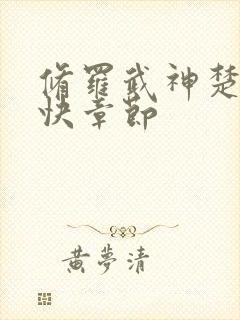 脩羅武神楚
快章節
黃夢清